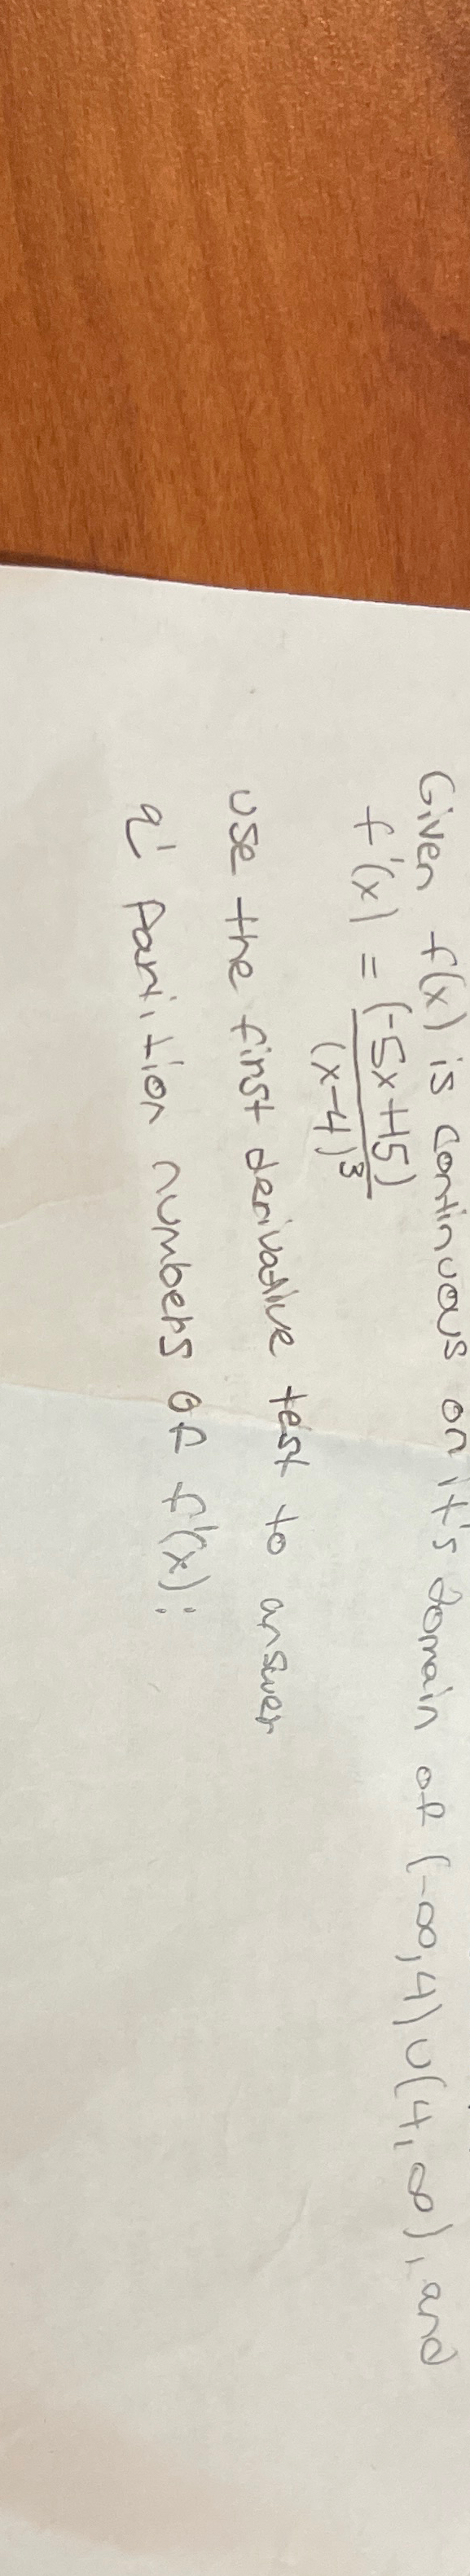 Given f(x) is continuous on it's domain of (-∞,4)∪(4,∞), and
f'(x) = (-5x+5)/(x-4)³
use the first derivative test to answer
a) Partition numbers of f'(x):